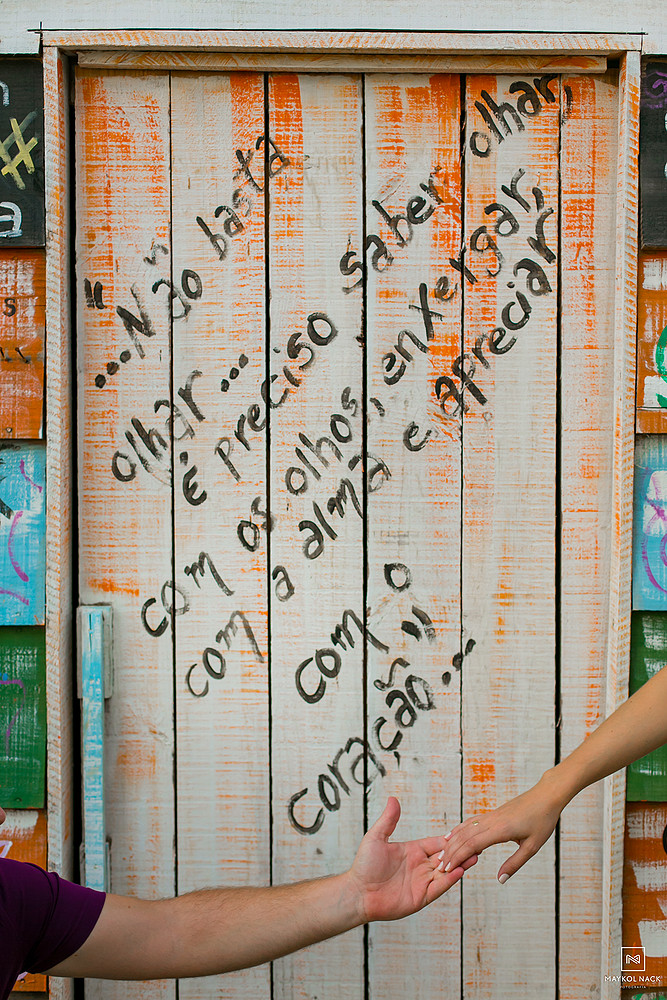 "...Não basta
olhar...
é preciso saber olhar,
com os olhos, enxergar,
com a alma e apreciar
com o
coração"...
#
a
s
MAYKOL NACK
FOTOGRAFIA